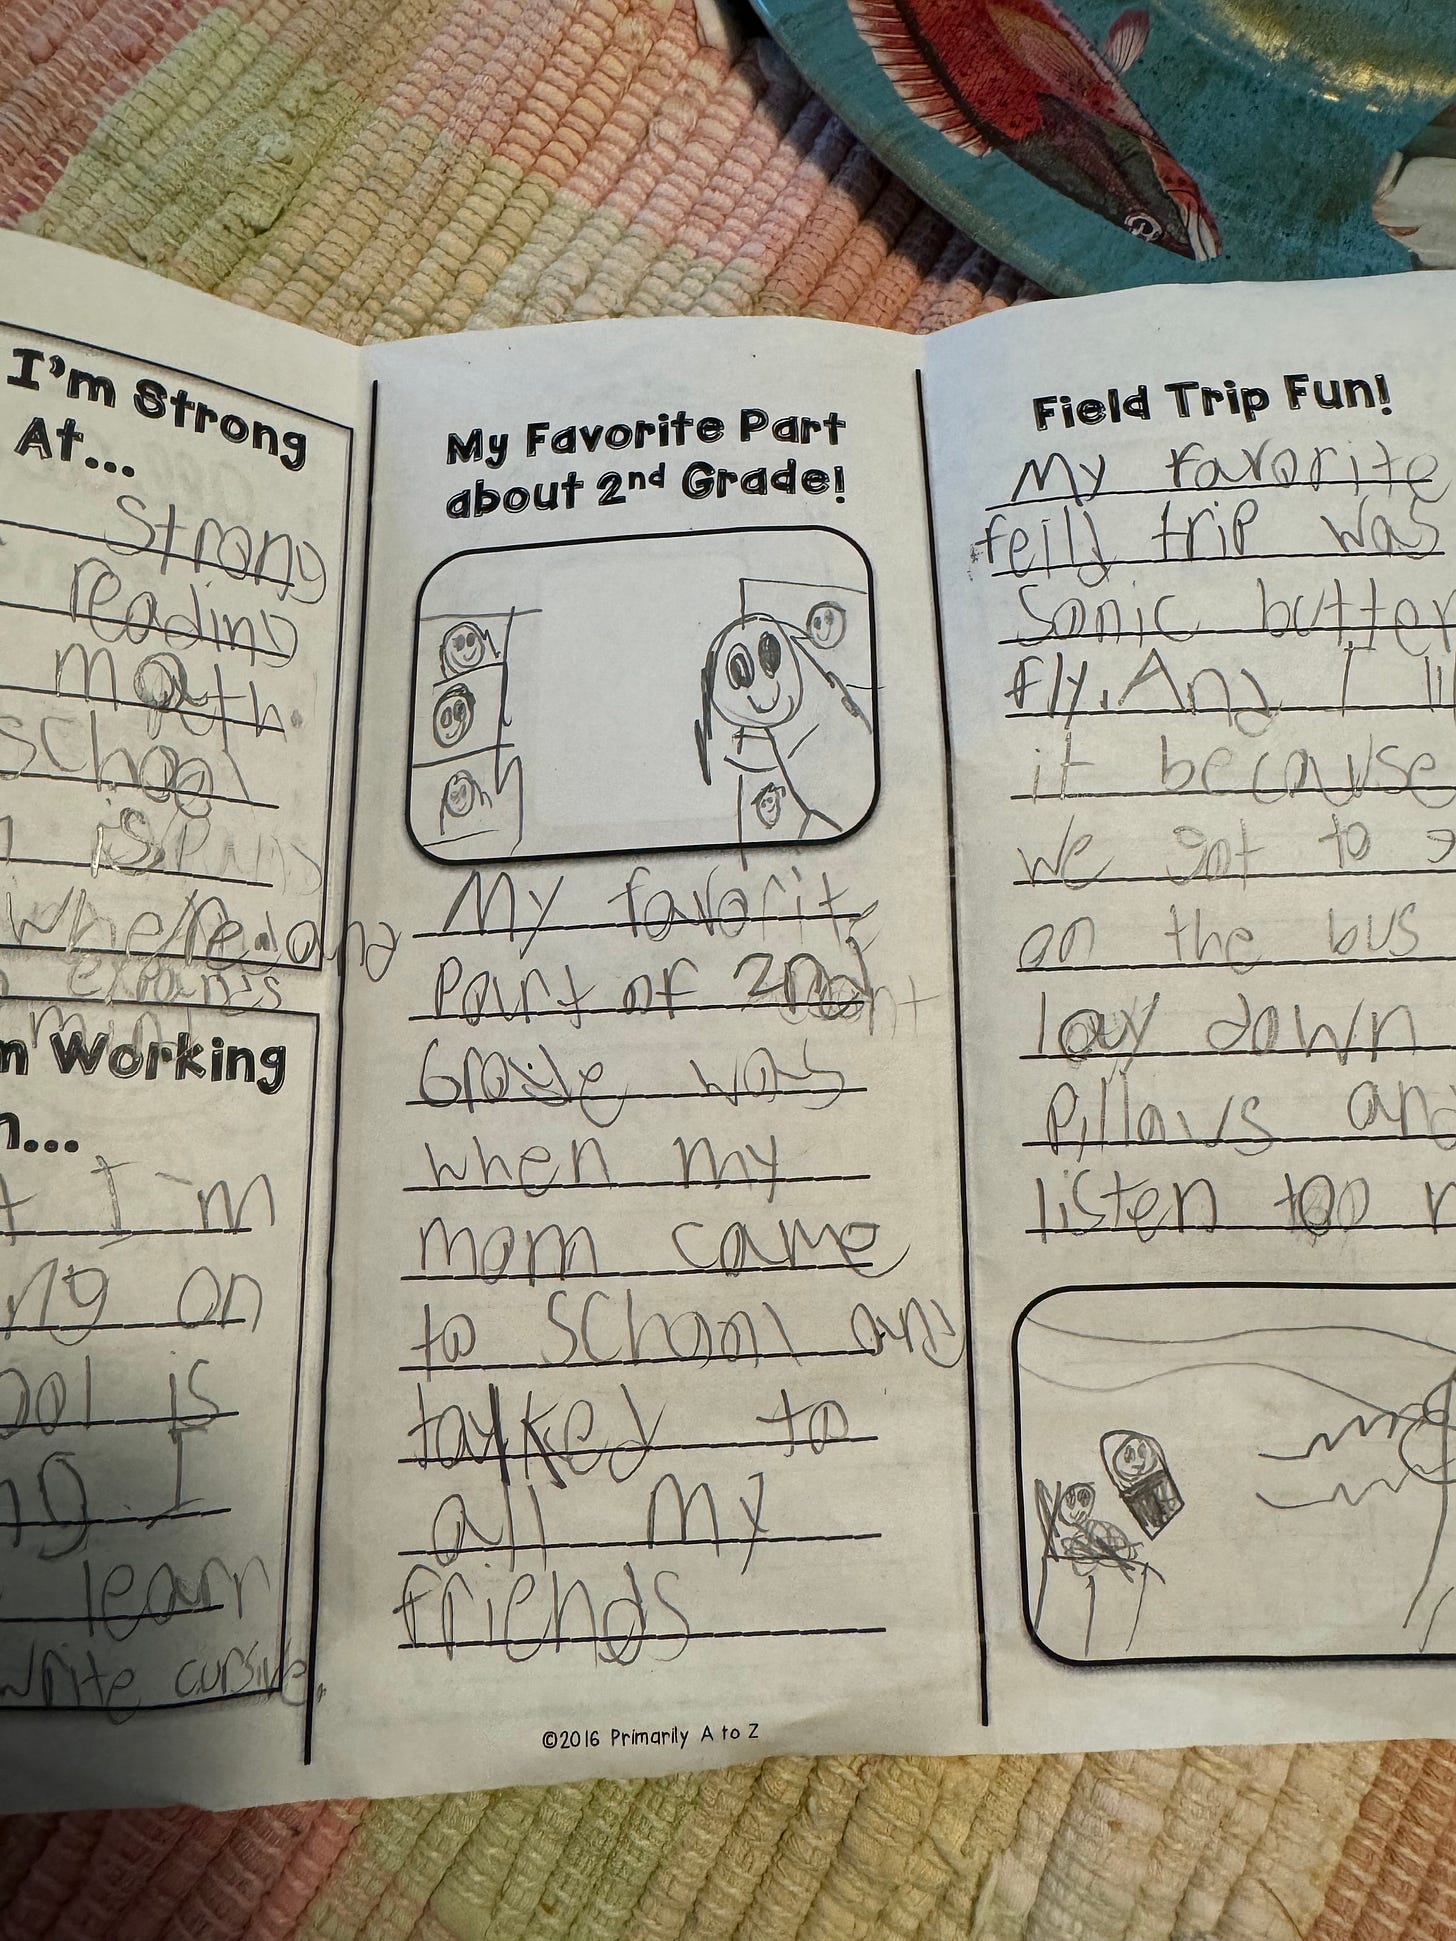 I'm Strong
At...
strong
reading
math.
school
is
where
and
expands
mind
m Working
n...
t I'm
ng on
ool is
ng. I
learn
write cursive.
My Favorite Part
about 2nd Grade!
My favorite
part of 2nd
Grade was
when my
mom came
to school and
talked to
all my
friends
©2016 Primarily A to Z
Field Trip Fun!
My favorite
feild trip was
Sonic butter
fly. And I li
it because
we got to g
on the bus
lay down
pillows and
listen too